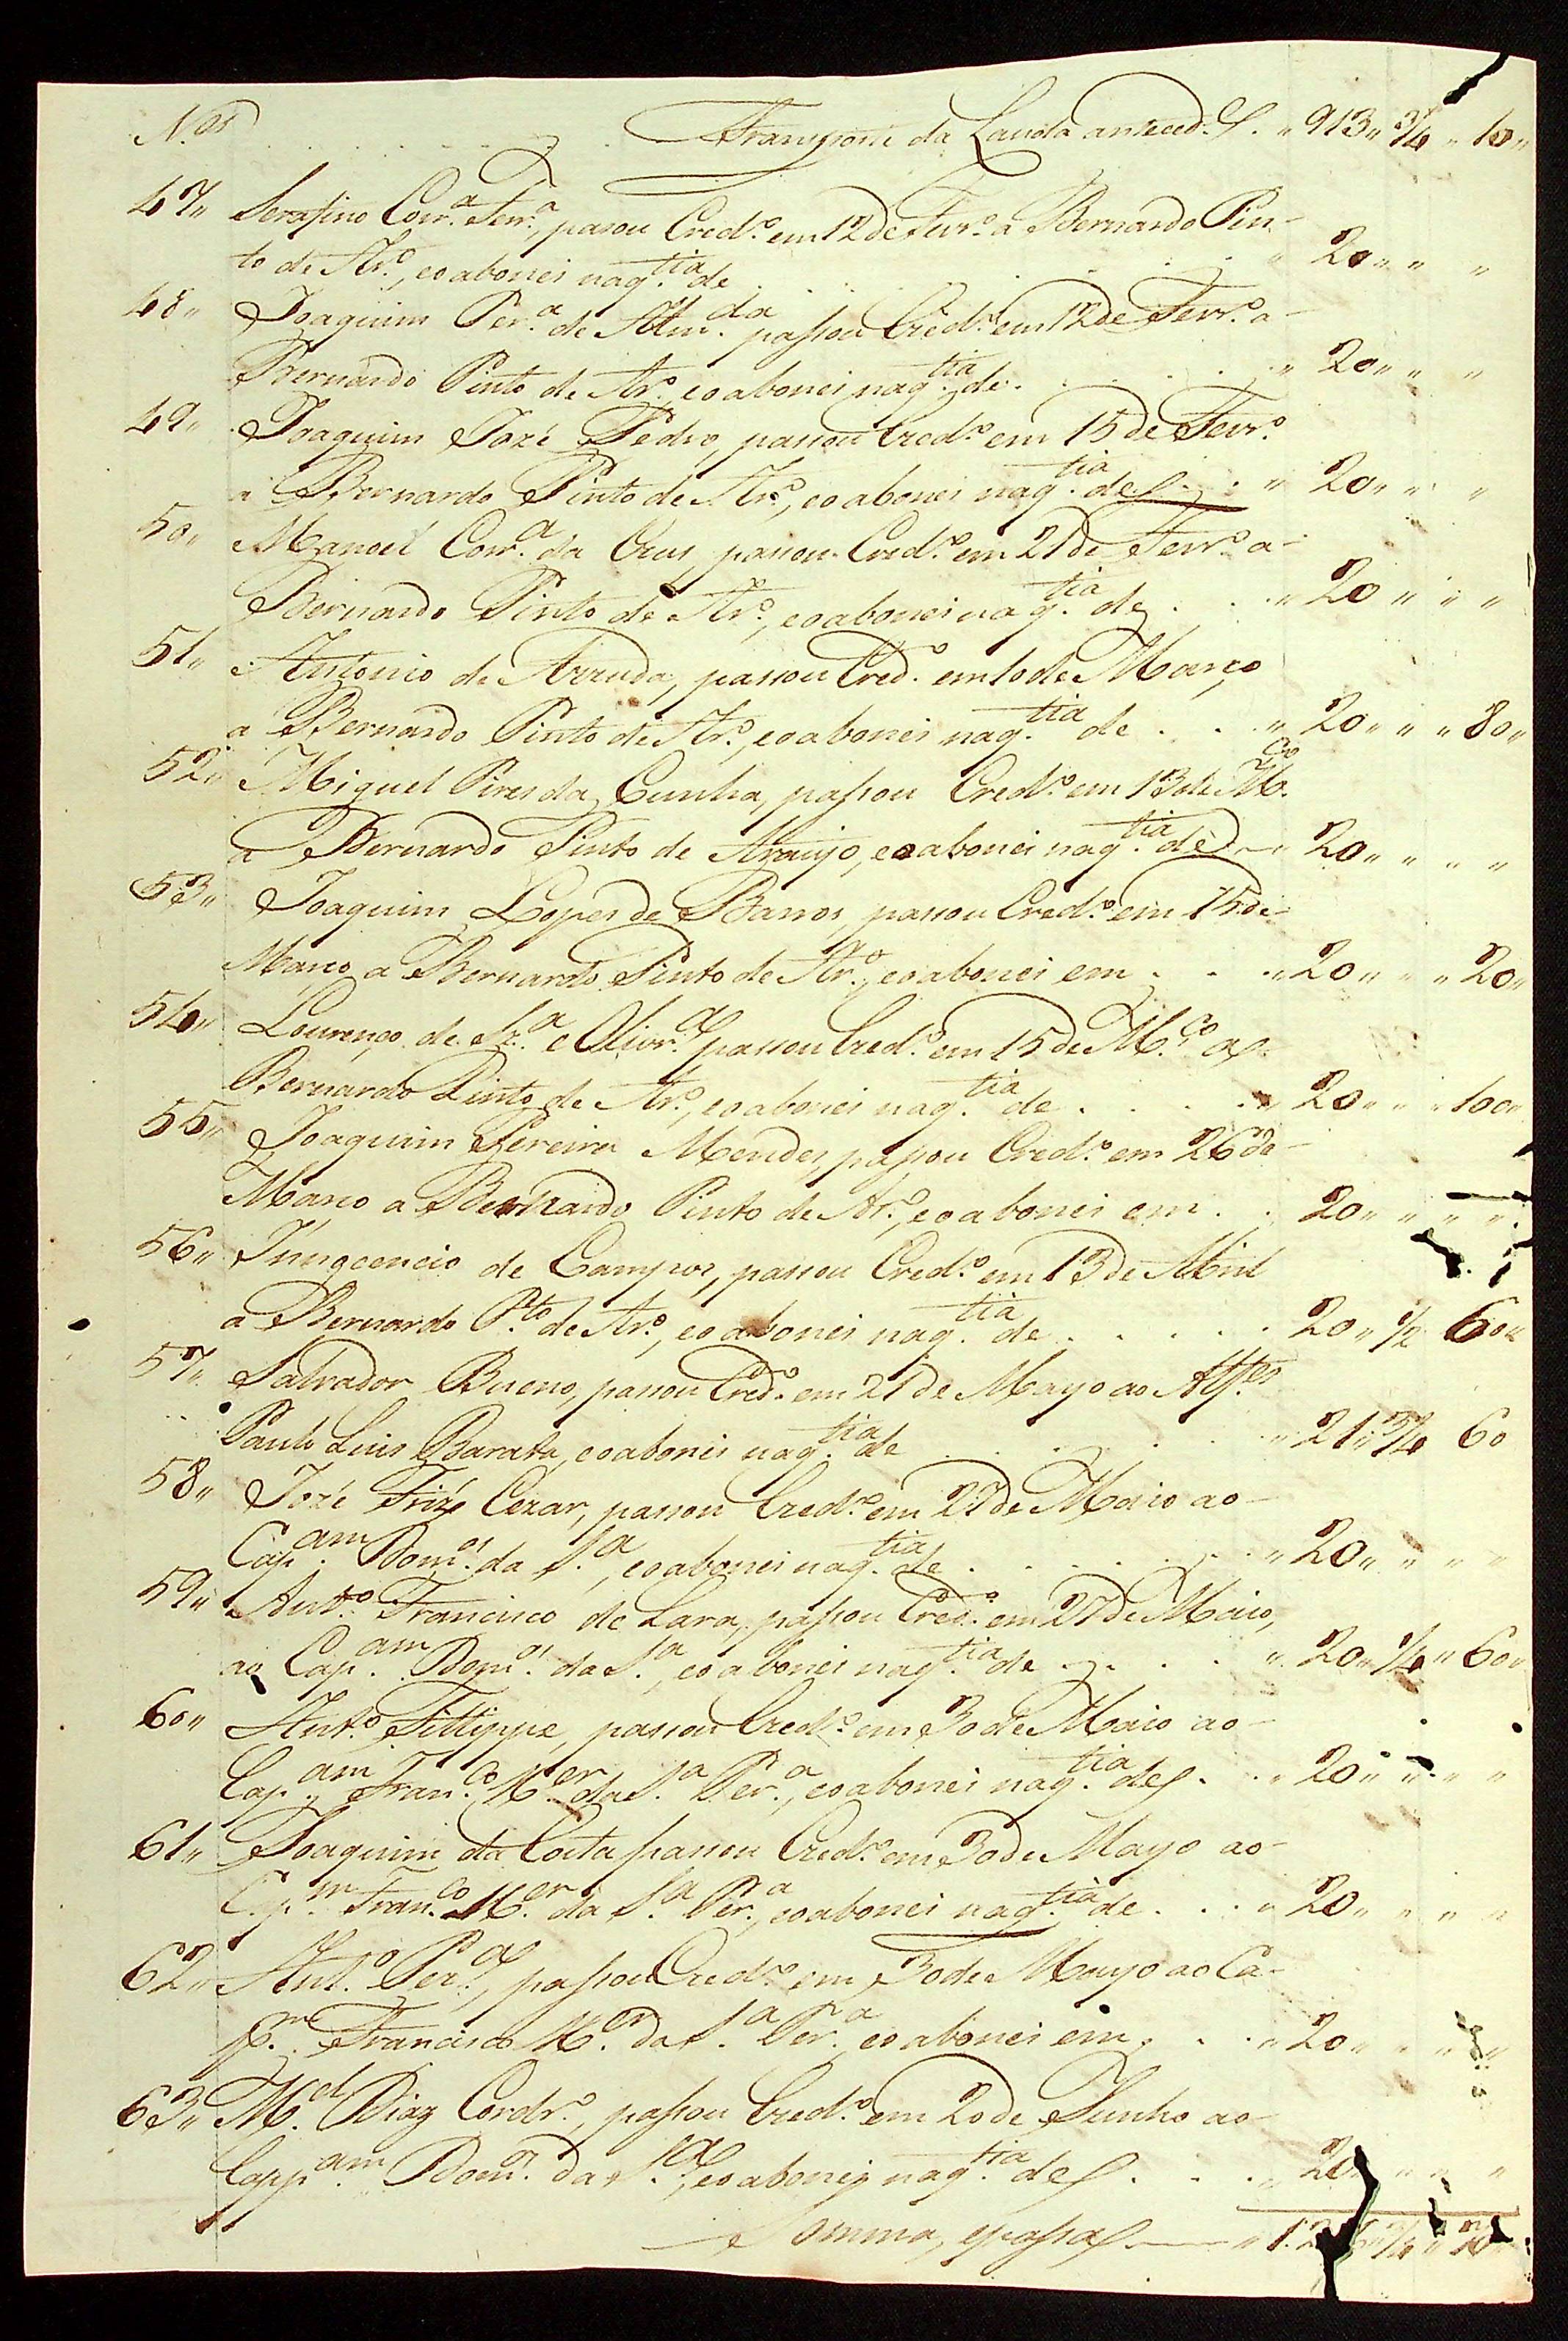 N.os Transporte da Lauda anteced.e " 913 " 3/4 " 10 "
47 " Serafino Corr.a Ferr.a, pasou Cred.o em 12 de Fevr.o a Bernardo Pin-
to de Ar.o, eo abonei naq.tia de " 20 " " "
48 " Joaquim Per.a de Alm.da passou Cred.o em 12 de Fevr.o a-
Bernardo Pinto de Ar.o, eo abonei naq.tia de " 20 " " "
49 " Joaquim Jozé Pedro, passou Cred.o em 15 de Fevr.o
a Bernardo Pinto de Ar.o, eo abonei naq.tia de " 20 " " "
50 " Manoel Corr.a da Crus, passou Cred.o em 21 de Fevr.o a-
Bernardo Pinto de Ar.o, eo abonei naq.tia de " 20 " " "
51 " Antonio de Arruda, passou Cred.o em 10 de Março
a Bernardo Pinto de Ar.o, eo abonei naq.tia de " 20 " " " 80 "
52 " Miguel Pires da Cunha, passou Cred.o em 13 de M.ço
a Bernardo Pinto de Araujo, eo abonei naq.tia de " 20 " " " "
53 " Joaquim Lopes de Barros, passou Cred.o em 15 de-
Março a Bernardo Pinto de Ar.o, eo abonei em " 20 " " " 20 "
54 " Lourenço de Sz.a e Olivr.a passou Cred.o em 15 de M.ço a
Bernardo Pinto de Ar.o, eo abonei naq.tia de " 20 " " " 100 "
55 " Joaquim Pereira Mendes, passou Cred.o em 26 de-
Março a Bernardo Pinto de Ar.o, eo abonei em 20 " " " "
56 " Innocencio de Campos, passou Cred.o em 13 de Abril
a Bernardo P.to de Ar.o, eo abonei naq.tia de 20 " 1/2 60 "
57 " Salvador Bueno, passou Cred.o em 21 de Mayo ao Alf.es
Paulo Luis Barata, eo abonei naq.tia de " 21 " 3/4 60
58 " Jozé Cezar, passou Cred.o em 27 de Maio ao-
Cap.am Dom.os da S.a, eo abonei naq.tia de " 20 " " " "
59 " Ant.o Francisco de Lara, passou Cred.o em 27 de Maio,
ao Cap.am Dom.os da S.a, eo abonei naq.tia de " 20 " 1/4 " 60 "
60 " Ant.o Fillippe, passou Cred.o em 30 de Maio ao-
Cap.am Fran.co X.er da S.a Per.a, eo abonei naq.tia de " 20 " " " "
61 " Joaquim da Costa passou Cred.o em 30 de Mayo ao-
Cap.m Fran.co X.er da S.a Per.a, eo abonei naq.tia de " 20 " " " "
62 " Ant.o Per.a, passou Cred.o em 30 de Mayo ao Ca-
p.m Francisco X.er da S.a Per.a eo abonei em " 20 " " "
63 " M.el Diaz Cordr.o, passou Cred.o em 20 de Junho ao-
Capp.am Dom.os da S.a, eo abonei naq.tia de " 20 " " " "
Somma, epassa